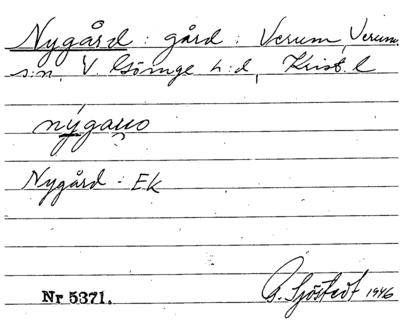 Nygård : gård : Verum, Verums
s:n, V. Göinge h:d, Krist. l
nýgaṇo
Nygård - EK
Nr 5371.
G. Sjöstedt 1946